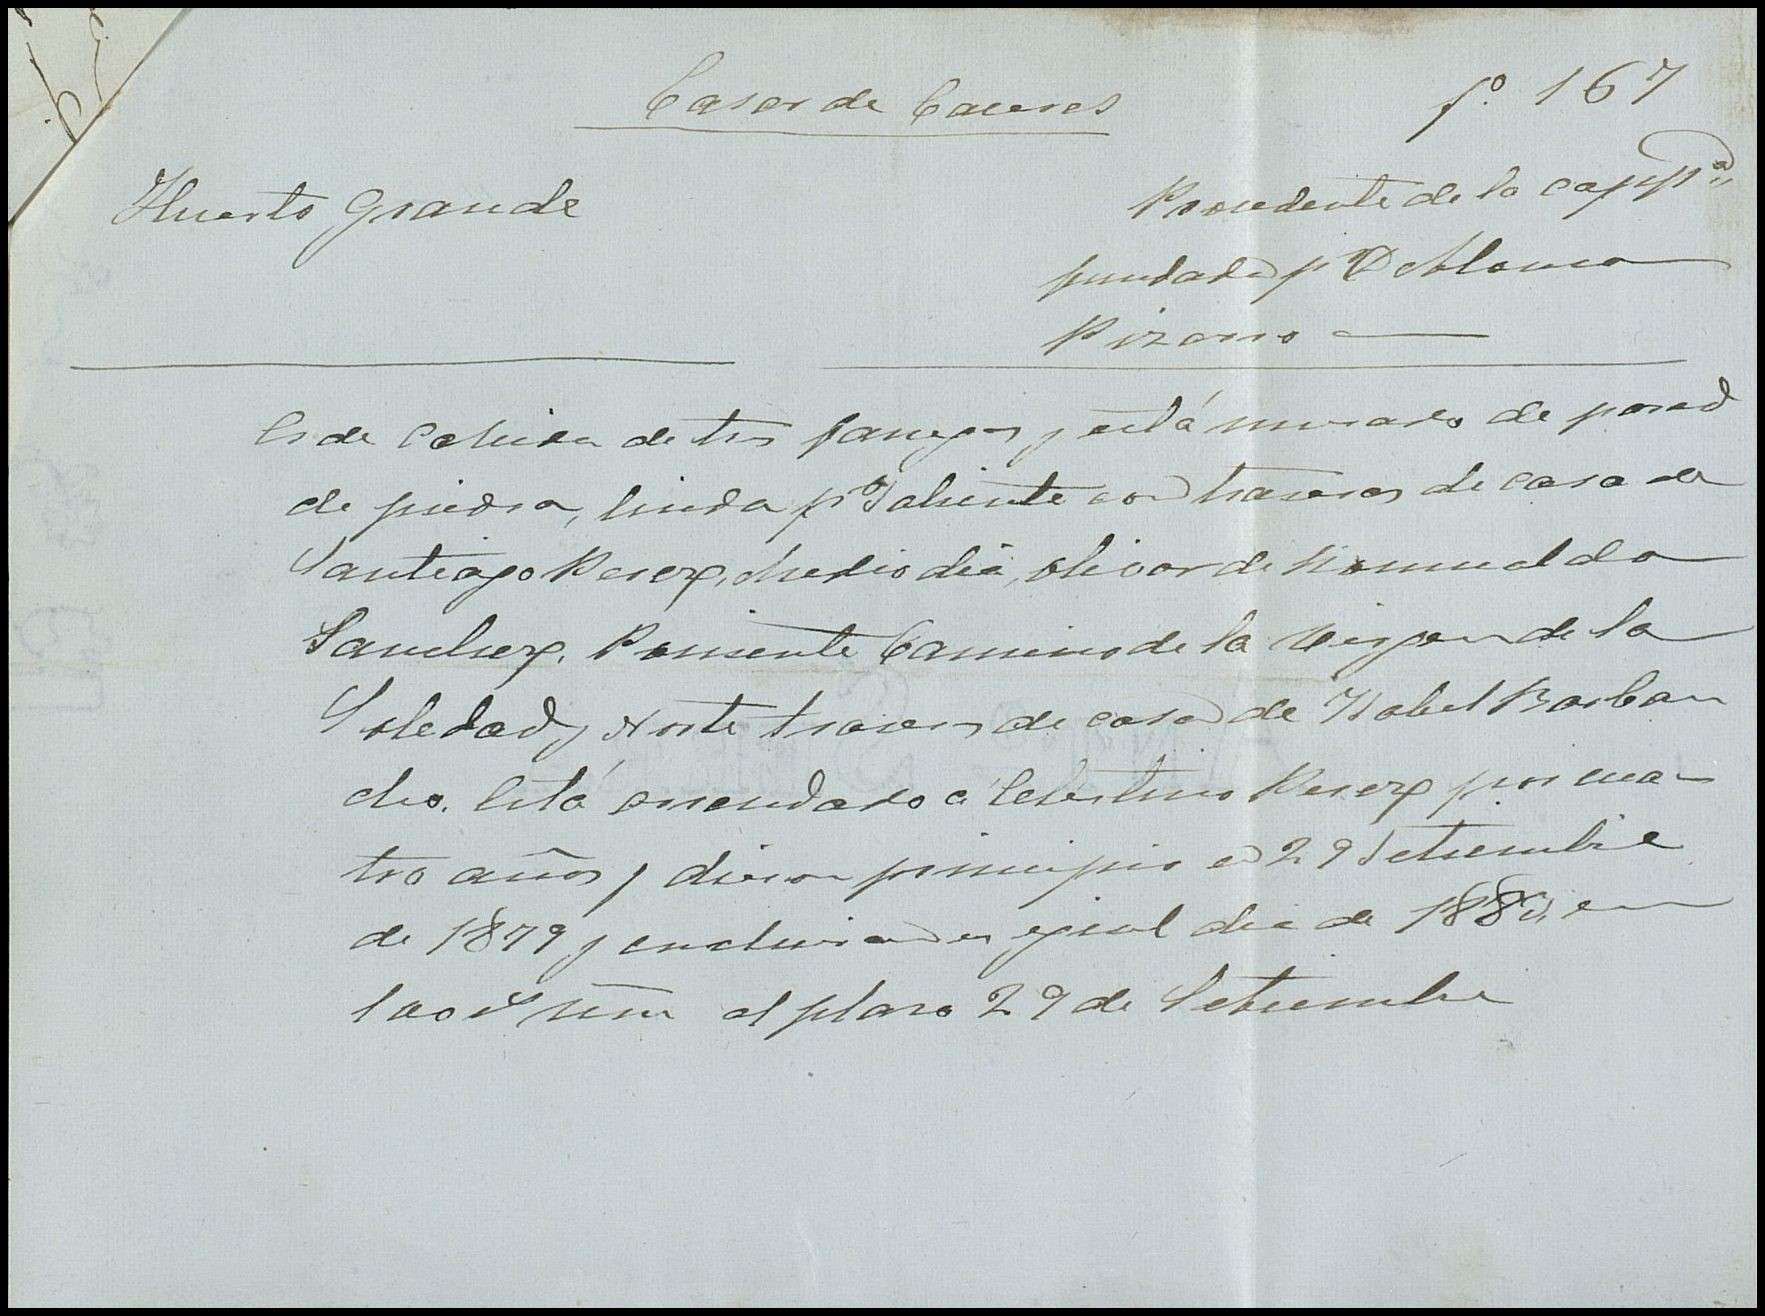 Casar de Caceres
fº 167
Huerto Grande
Procedente de la capp.ª
fundada pr D Alonso
Pizarro
Es de cabida de tres fanegas y está murado de pared
de piedra, linda pr Saliente con traseras de casa de
Santiago Perez, Mediodia, olivar de Romualdo
Sanchez, Poniente Camino de la Virgen de la
Soledad y Norte traseras de casa de Isabel Barban
cho. Está arrendado á Celestino Perez por cua
tro años, dieron principio en 29 Setiembre
de 1879 y concluiran en igual dia de 1883, en
al plazo 29 de Setiembre